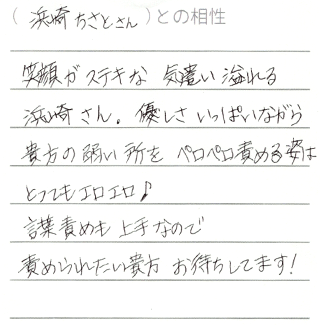 (浜崎ちさとさん)との相性
笑顔がステキな 気遣い溢れる
浜崎さん。優しさいっぱいながら
貴方の弱い所を ペロペロ責める姿は
とってもエロエロ♪
言葉責めも上手なので
責められたい貴方 お待ちしてます!